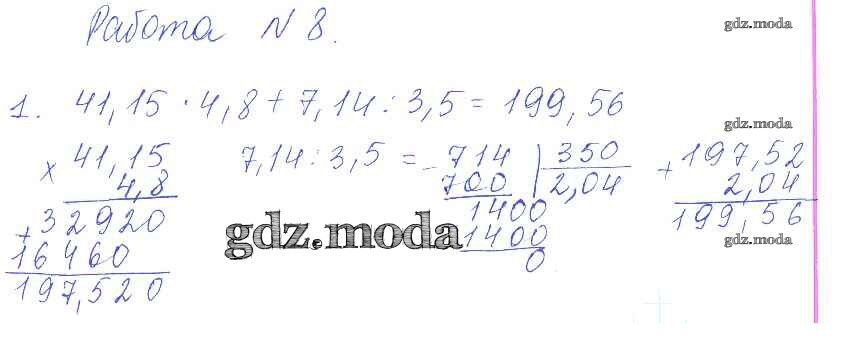 Работа N 8.
gdz.moda
1. 41,15 · 4,8 + 7,14 : 3,5 = 199,56
gdz.moda
× 41,15
4,8
+ 32920
16460
197,520
7,14 : 3,5 = - 714 | 350
700 2,04
1400
1400
0
+ 197,52
2,04
199,56
gdz.moda
gdz.moda